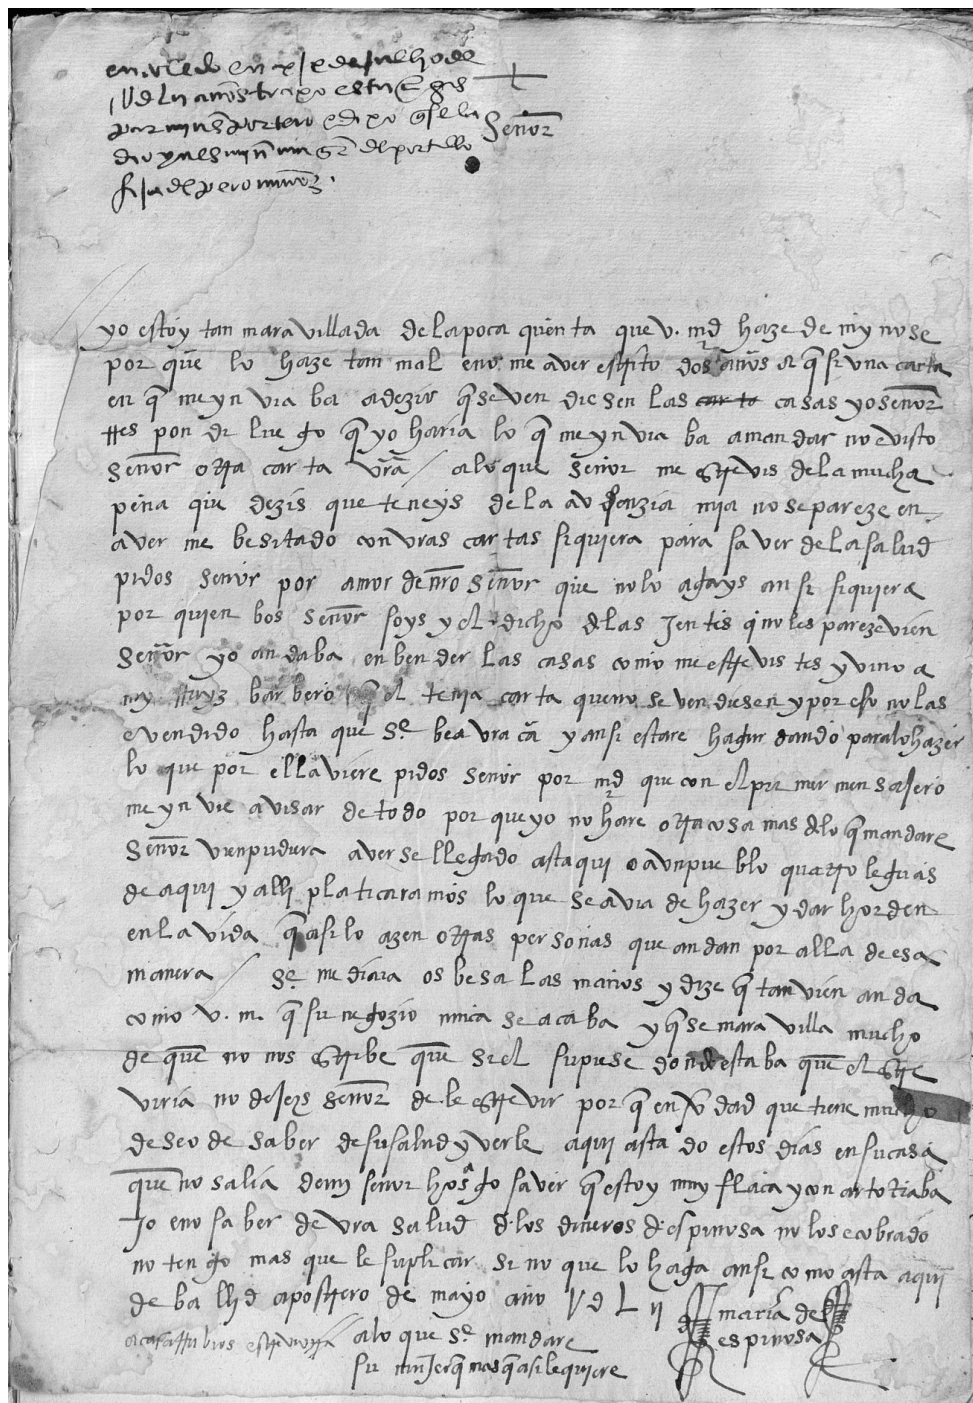 en toledo en xix de julho de
1Vd Ln años traxo esta carta
par munõs portero e dixo q se la
dio ynes muñ muger del portillo
fija del pero munoz.
+
señor
yo estoy tan maravillada de la poca quenta que v. md haze de my no se
por que lo haze tan mal en no me aver esqrito dos años a q si una carta
en q me ynviaba a dezir q se vendiesen las casas yo señor
rrespondi luego q yo haria lo q me ynviaba a mandar no e visto
señor otra carta vra / a lo que señor me esqrevis de la mucha
pena que dezis que teneys de la avsenzia mia no se pareze en
aver me besitado con vras cartas siquiera para saver de la salud
pidos señor por amor de nro señor que no lo agays ansi siquiera
por quien bos señor soys y el dicho de las jentes q no les pareze vien
señor yo andaba en bender las casas como me esqrevistes y vino a
my rruyz barbero q el tenia carta que no se vendiesen y por eso no las
e vendido hasta que se bea vra ca y ansi estare hagurdando para lo hazer
lo que por ella viere pidos señor por md que con el primer mensajero
me ynvie avisar de todo por que yo no hare otra cosa mas de lo q mandare
señor vien pudiera averse llegado asta qui o a un pueblo quatro leguas
de aqui y alli platicaramos lo que se avia de hazer y dar horden
en la vida q asi lo azen otras personas que andan por alla de esa
manera / se me diara os besa las manos y dize q tanvien anda
como v. m. q su negozio nunca se acaba y q se maravilla mucho
de que no nos esqribe que si el supiese donde estaba que el esqre
viria no dejeys señor de le esqrevir por q en vdad que tiene mucho
deseo de saber de su salud y verle aqui asta do estos dias en su casa
que no salia de my señor hos hgo saver q estoy muy flaca y con arto traba
jo en no saber de vra salud de los dineros de espinosa no los e cobrado
no tengo mas que le suplicar si no que lo haga ansi como asta aqui
de ballid a postrero de mayo año 1V d L II
maria de
espinosa
a lo que se mandare
su mujer q mas q a si le quiere